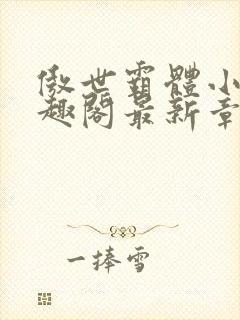 傲世霸體小
趣閣最新章
一捧雪